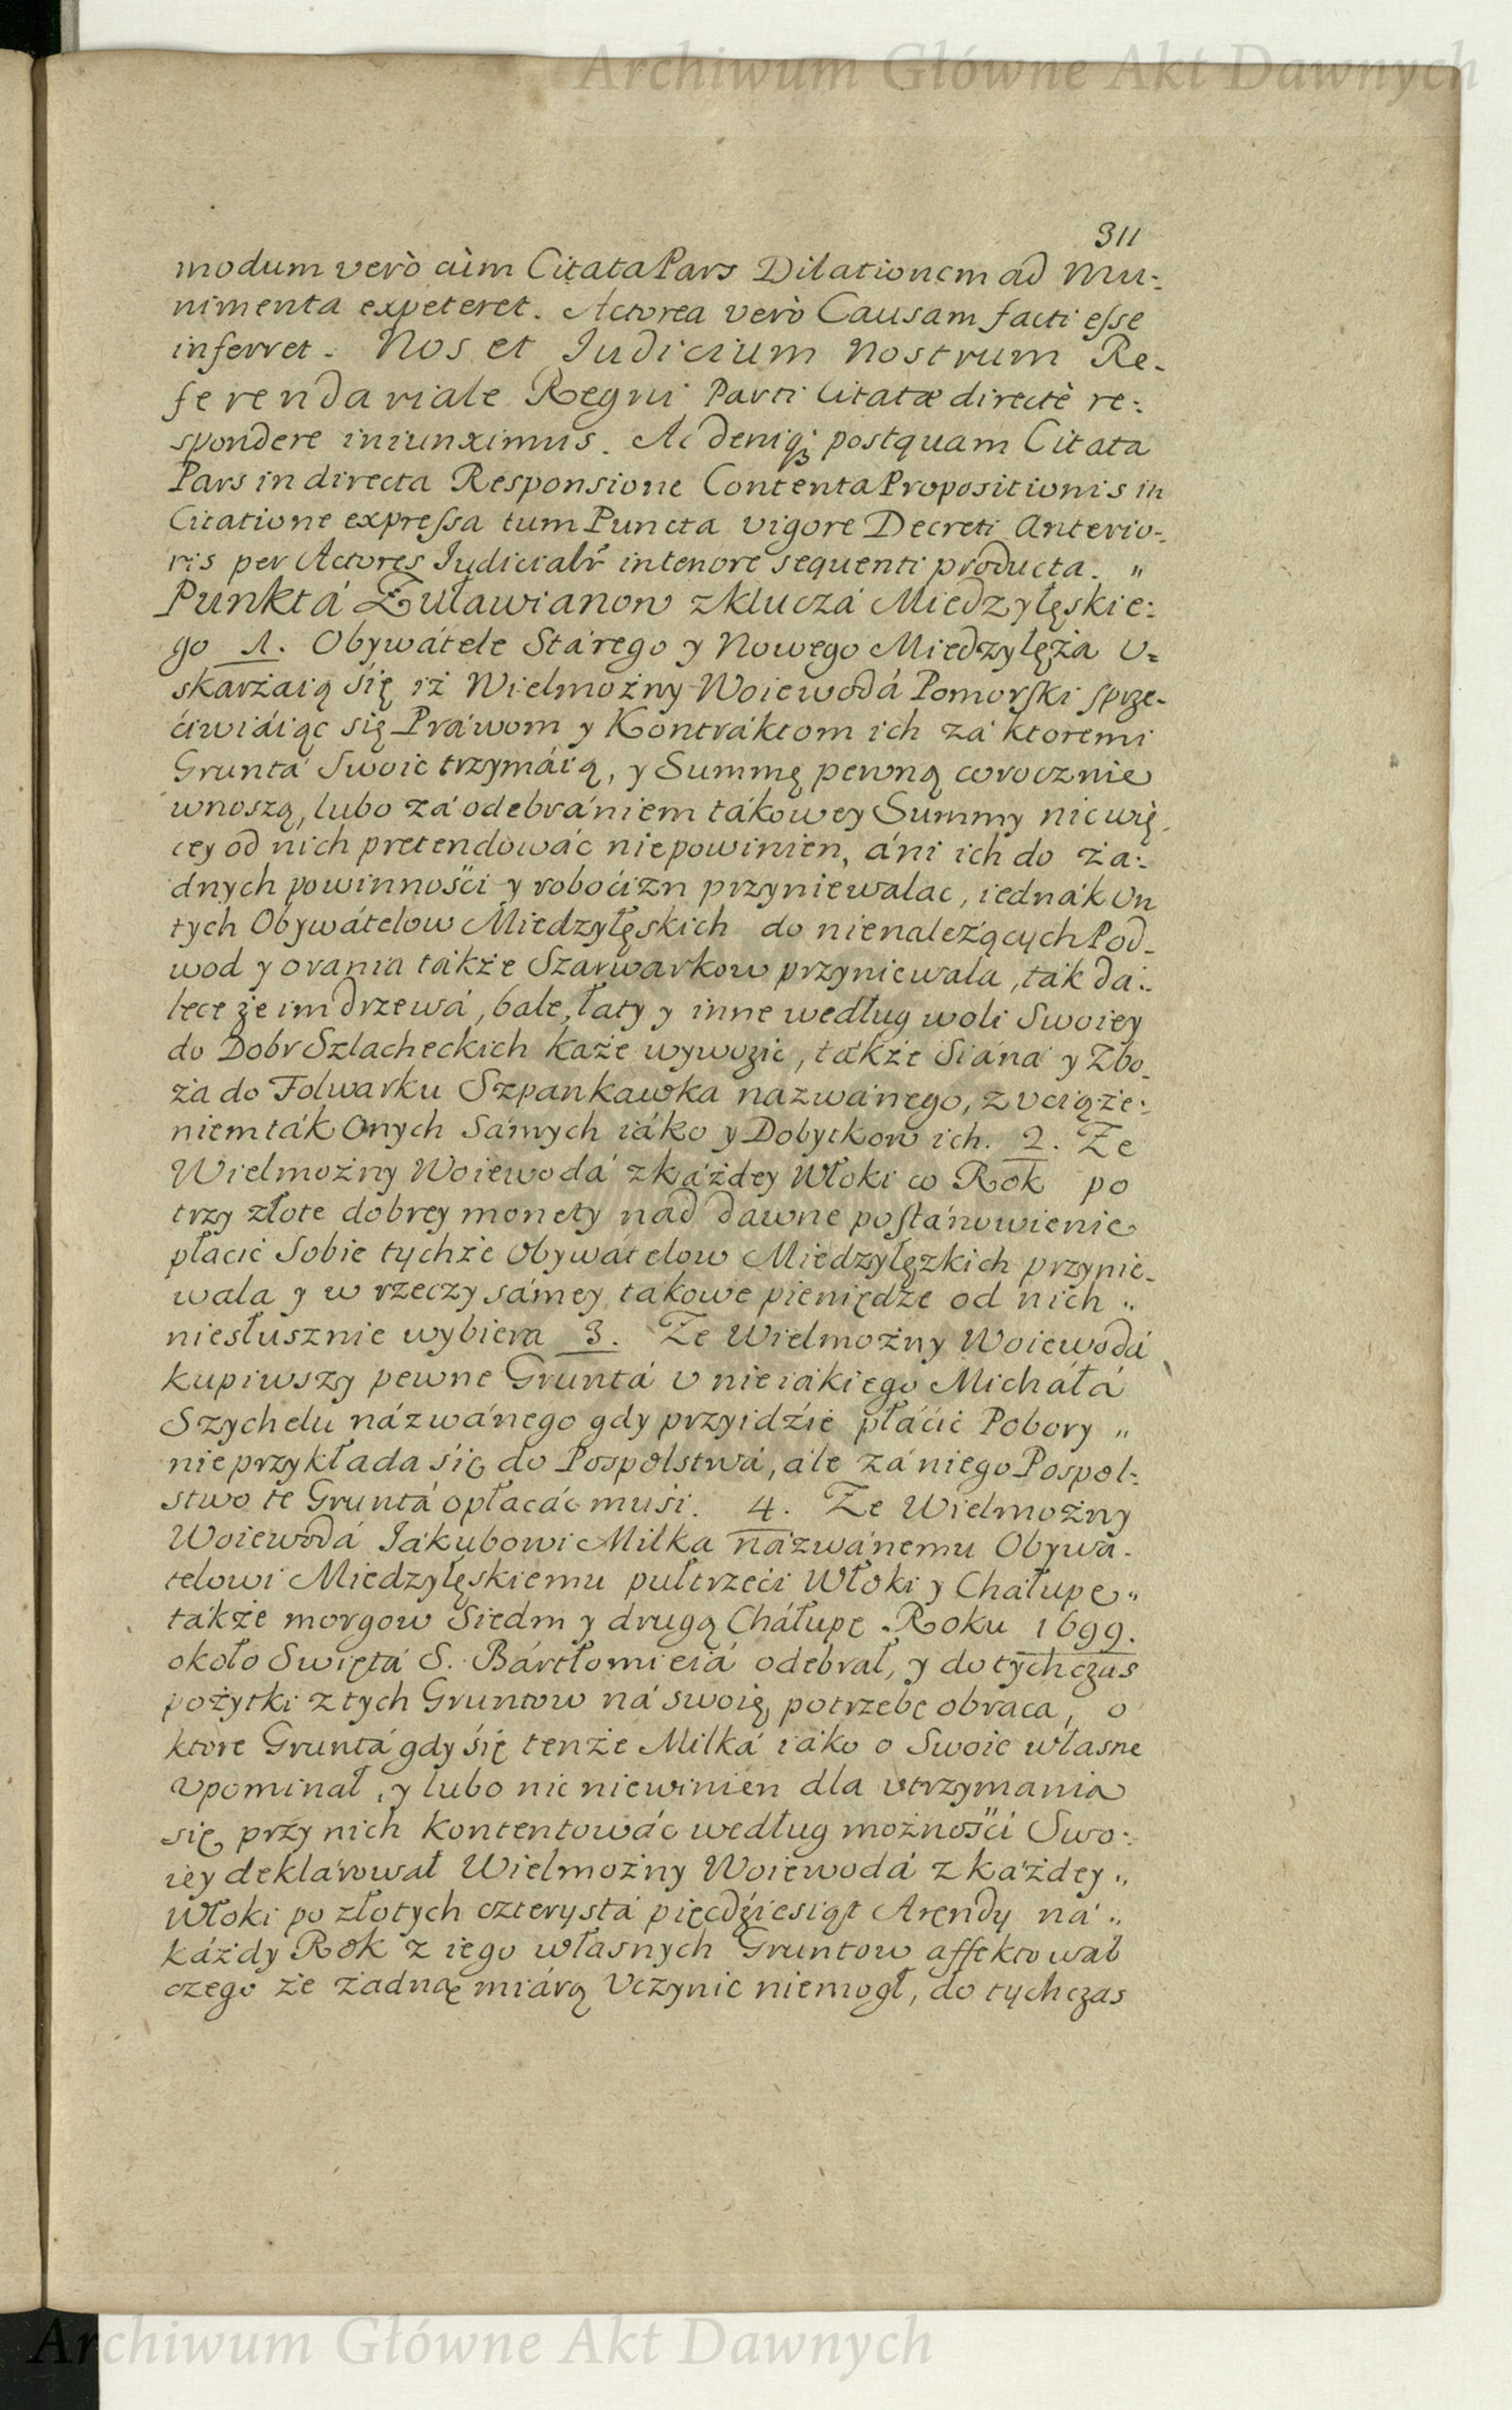 Archiwum Główne Akt Dawnych
311
modum verò cùm Citata Pars Dilationem ad Mu-:
nimenta expeteret. Actorea verò Causam facti esse
inferret. Nos et Iudicium Nostrum Re-
ferendariale Regni Parti Citatæ directè re-:
spondere iniunximus. Ac deniq; postquam Citata
Pars in directa Responsione Contenta Propositionis in
Citatione expressa tum Puncta vigore Decreti Anterio-:
ris per Actores Iudicialr̃ in tenore sequenti producta. "
Punktá Żuławianow z klucza Miedzyłęskie:
go 1. Obywátele Stárego y Nowego Miedzylęża U=
skarżaią się iż Wielmożny Woiewodá Pomorski sprze-
ćiwiáiąc się Práwom y Kontráktom ich zá ktoremi
Gruntá Swoie trzymáią, y Summę pewną corocznie
wnoszą, lubo zá odebrániem tákowey Summy nic wię-
cey od nich pretendowáć niepowinien, áni ich do ża-:
dnych powinnośći y roboćizn przyniewalac, iednák On
tych Obywátelow Miedzyłęskich do nienależących Pod-
wod y orania także Szarwarkow przyniewala, ták da-:
lece że im drzewá, bale, łaty y inne według woli Swoiey
do Dobr Szlacheckich każe wywozic, tákże Siáná y Zbo-
ża do Folwarku Szpankawka nazwánego, z vciąże-:
niem ták Onych Sámych iáko y Dobytkow ich. 2. Że
Wielmożny Woiewodá z káżdey Włoki co Rok po
trzy złote dobrey monety nád dawne postánowienie
płacić Sobie tychże Obywátelow Miedzyłęzkich przynie-
wala y w rzeczy sámey takowe pieniędze od nich "
niesłusznie wybiera 3. Że Wielmożny Woiewodá
kupiwszy pewne Gruntá v nieiakiego Micháłá
Szychelu názwánego gdy przyidźie płáćić Pobory "
nie przykłada się do Pospolstwá, ale zá niego Pospol-:
stwo te Gruntá opłacáć muśi. 4. Że Wielmożny
Woiewodá Iákubowi Milka názwánemu Obywa-
telowi Miedzyłęskiemu pułtrzeći Włoki y Chałupę "
także morgow Siedm y drugą Cháłupę Roku 1699.
około Swiętá S. Bártłomieiá odebrał, y do tychczas
pożytki z tych Gruntow ná swoię potrzebę obraca, o
ktore Gruntá gdy się tenże Milká iáko o Swoie własne
vpominał, y lubo nic niewinien dla vtrzymania
się przy nich kontentowáć według możnośći Swo-:
iey deklárował Wielmożny Woiewodá z każdey "
Włoki po złotych czterysta pięćdźiesiąt Arendy ná "
káżdy Rok z iego własnych Gruntow affektował
czego że żadnąę miárą Vczynić niemogł, do tychczas
Archiwum Główne Akt Dawnych